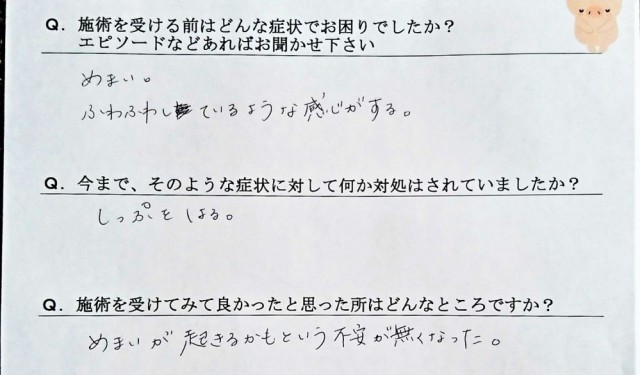 Q．施術を受ける前はどんな症状でお困りでしたか？
エピソードなどあればお聞かせ下さい
めまい。
ふわふわしているような感じがする。
Q．今まで、そのような症状に対して何か対処はされていましたか？
しっぷをはる。
Q．施術を受けてみて良かったと思った所はどんなところですか？
めまいが起きるかもという不安が無くなった。